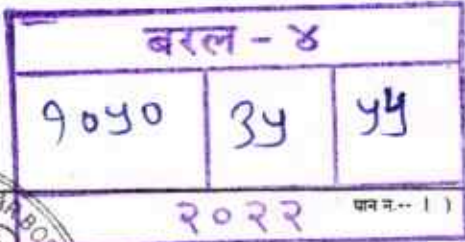 बरल - ४
१०५० ३५ ५५
२०२२ पान न.-- ( )